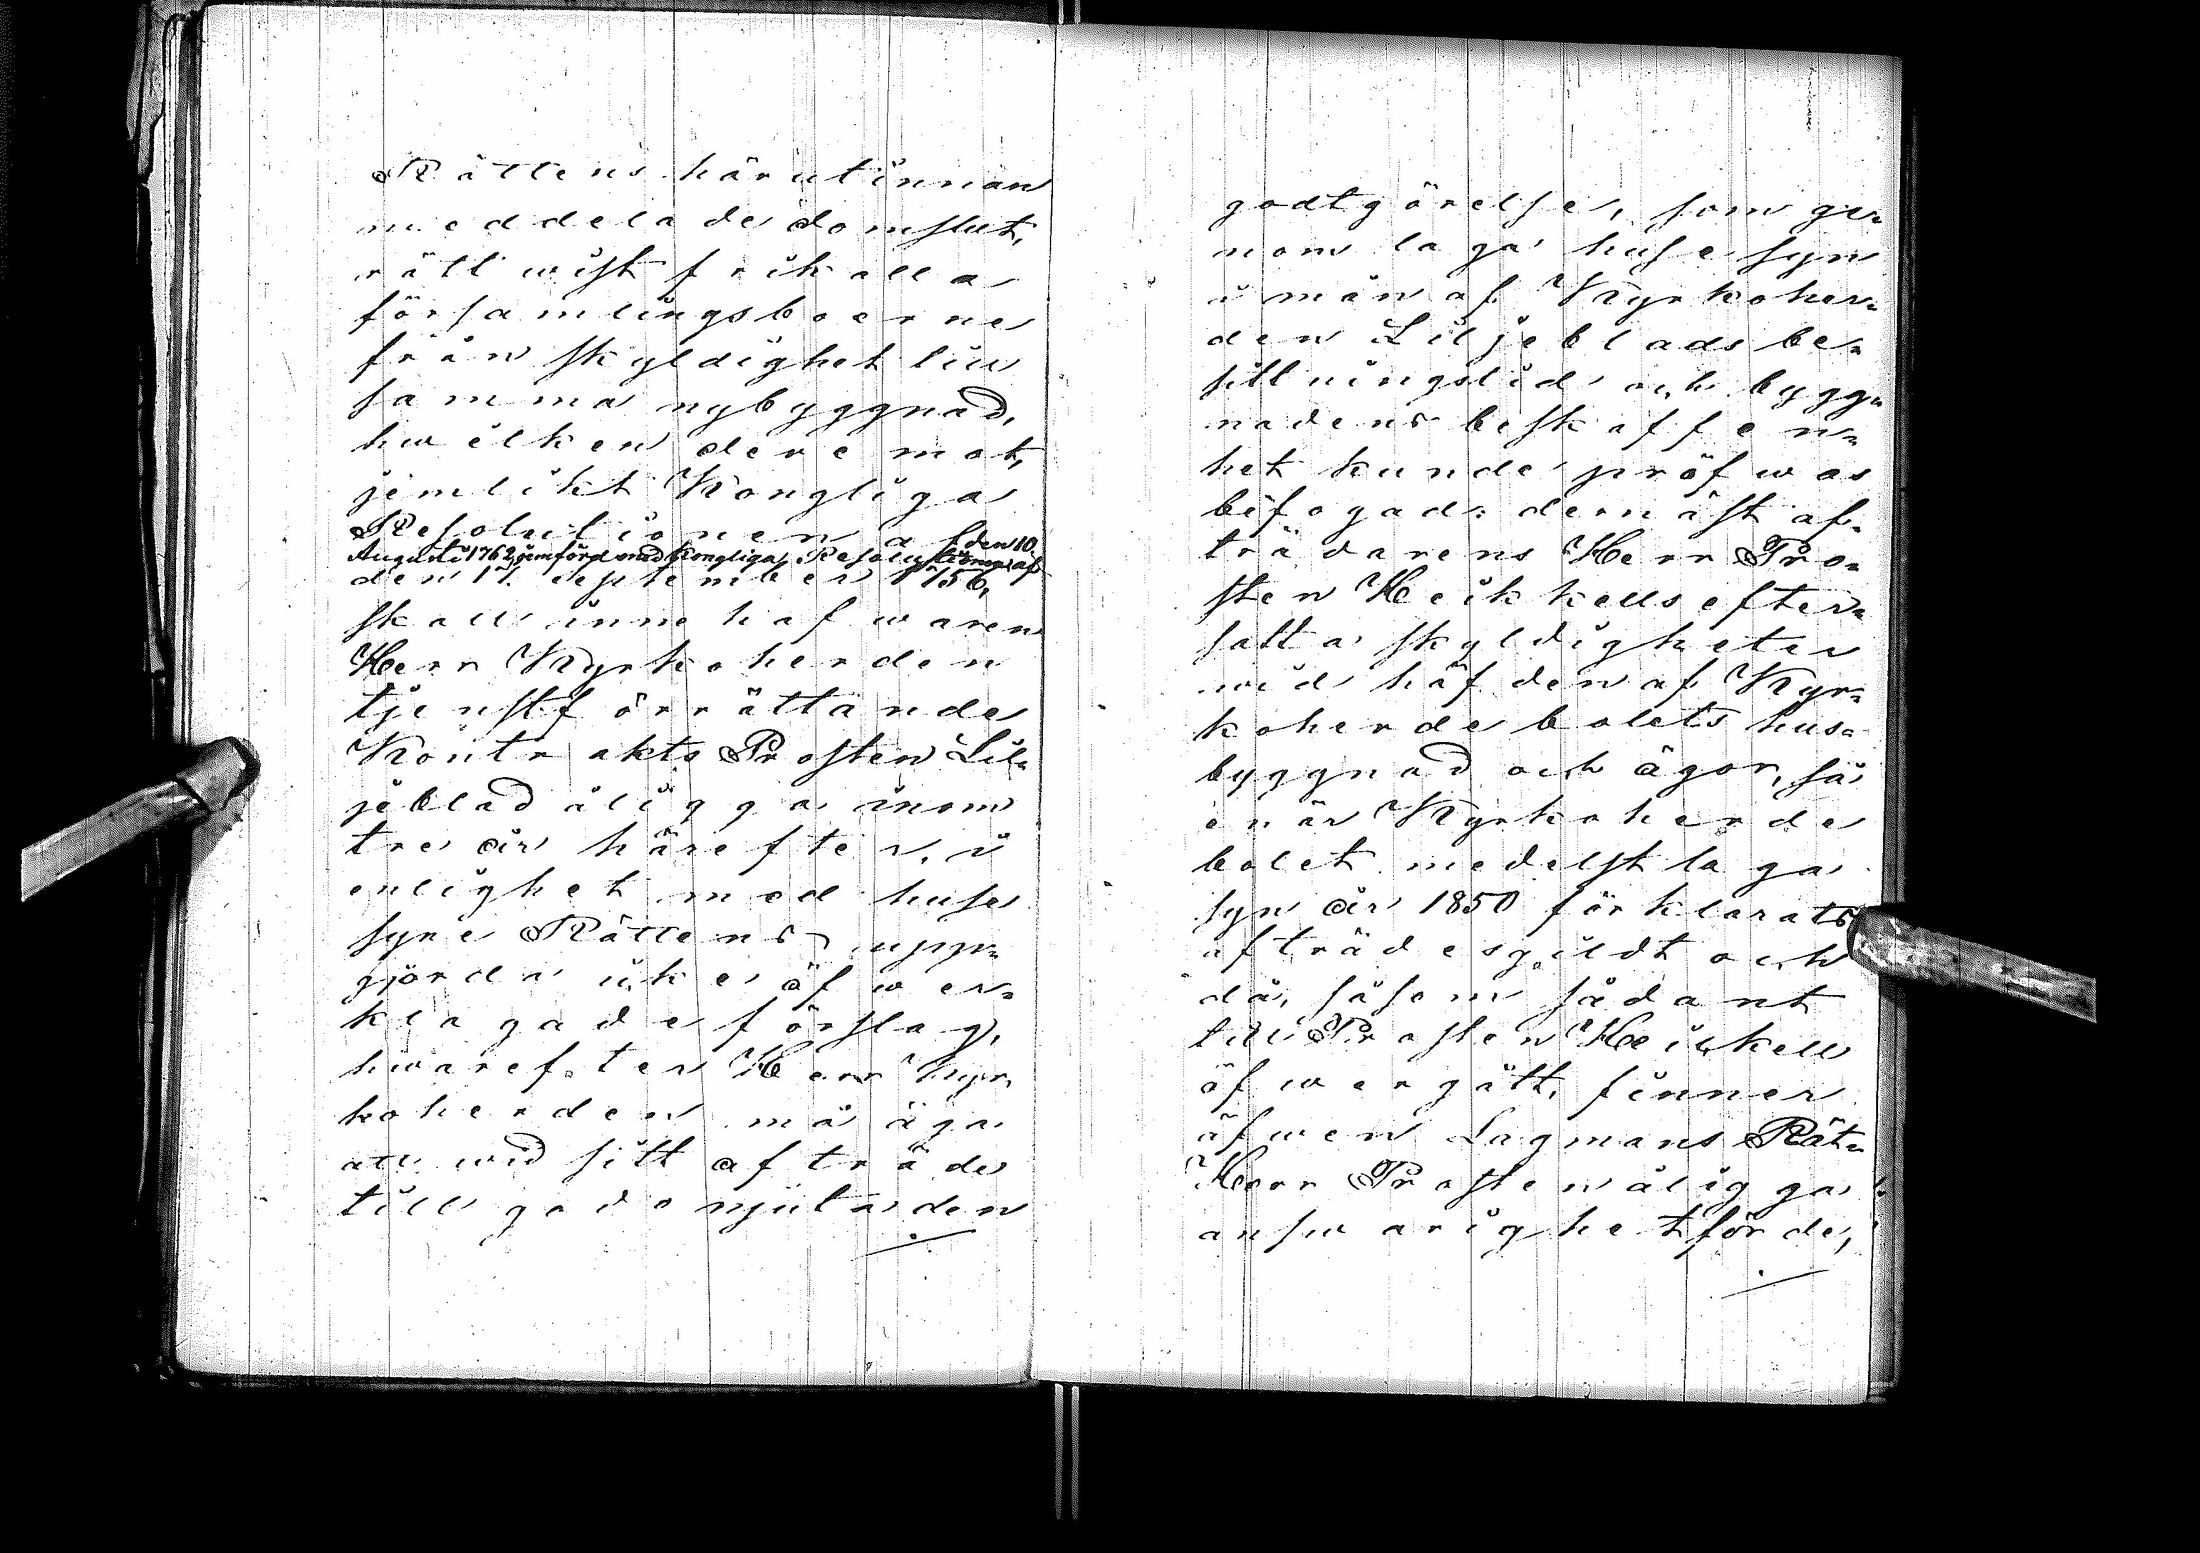 Rättens härutinnan
meddelade domslut,
rättwist frikalla
församlingsboerne
från skyldighet till
samma nybyggnad,
hwilken deremot,
jemlikt Kongliga
Resolutionen af den 10
Augusti 1762, jemförd med Kongliga Resolutionen af
den 17 September 1756,
skall innehafwaren
Herr Kyrkoherden
tjenstförrättande
Kontrakts Prosten Lil=
jeblad åligga inom
tre år härefter, i
enlighet med huse
syne Rättens upp=
gjorda icke öfwer=
klagade förslag,
hwarefter Herr Kyr
koherden må äga
att wid sitt afträde
tillgodonjuta den
godtgörelse, som ge=
nom laga huse syn
i mån af Kyrkoher=
den Liljeblads be=
sittningstid och bygg=
nadens beskaffen=
het kunde pröfwas
befogad; dernäst af=
trädarens Herr Pro=
sten Heikkells efter=
satta skyldigheter
wid häfden af Kyr=
koherdebolets hus=
byggnad och ägor, så
enär Kyrkoherde
bolet medelst laga
syn år 1850 förklarats
afträdesgildt och
då, såsom sådant
till Prosten Heikkell
öfwergått, finner
äfwen Lagmans Rät=
Herr Prosten åligga
answarighet för de,